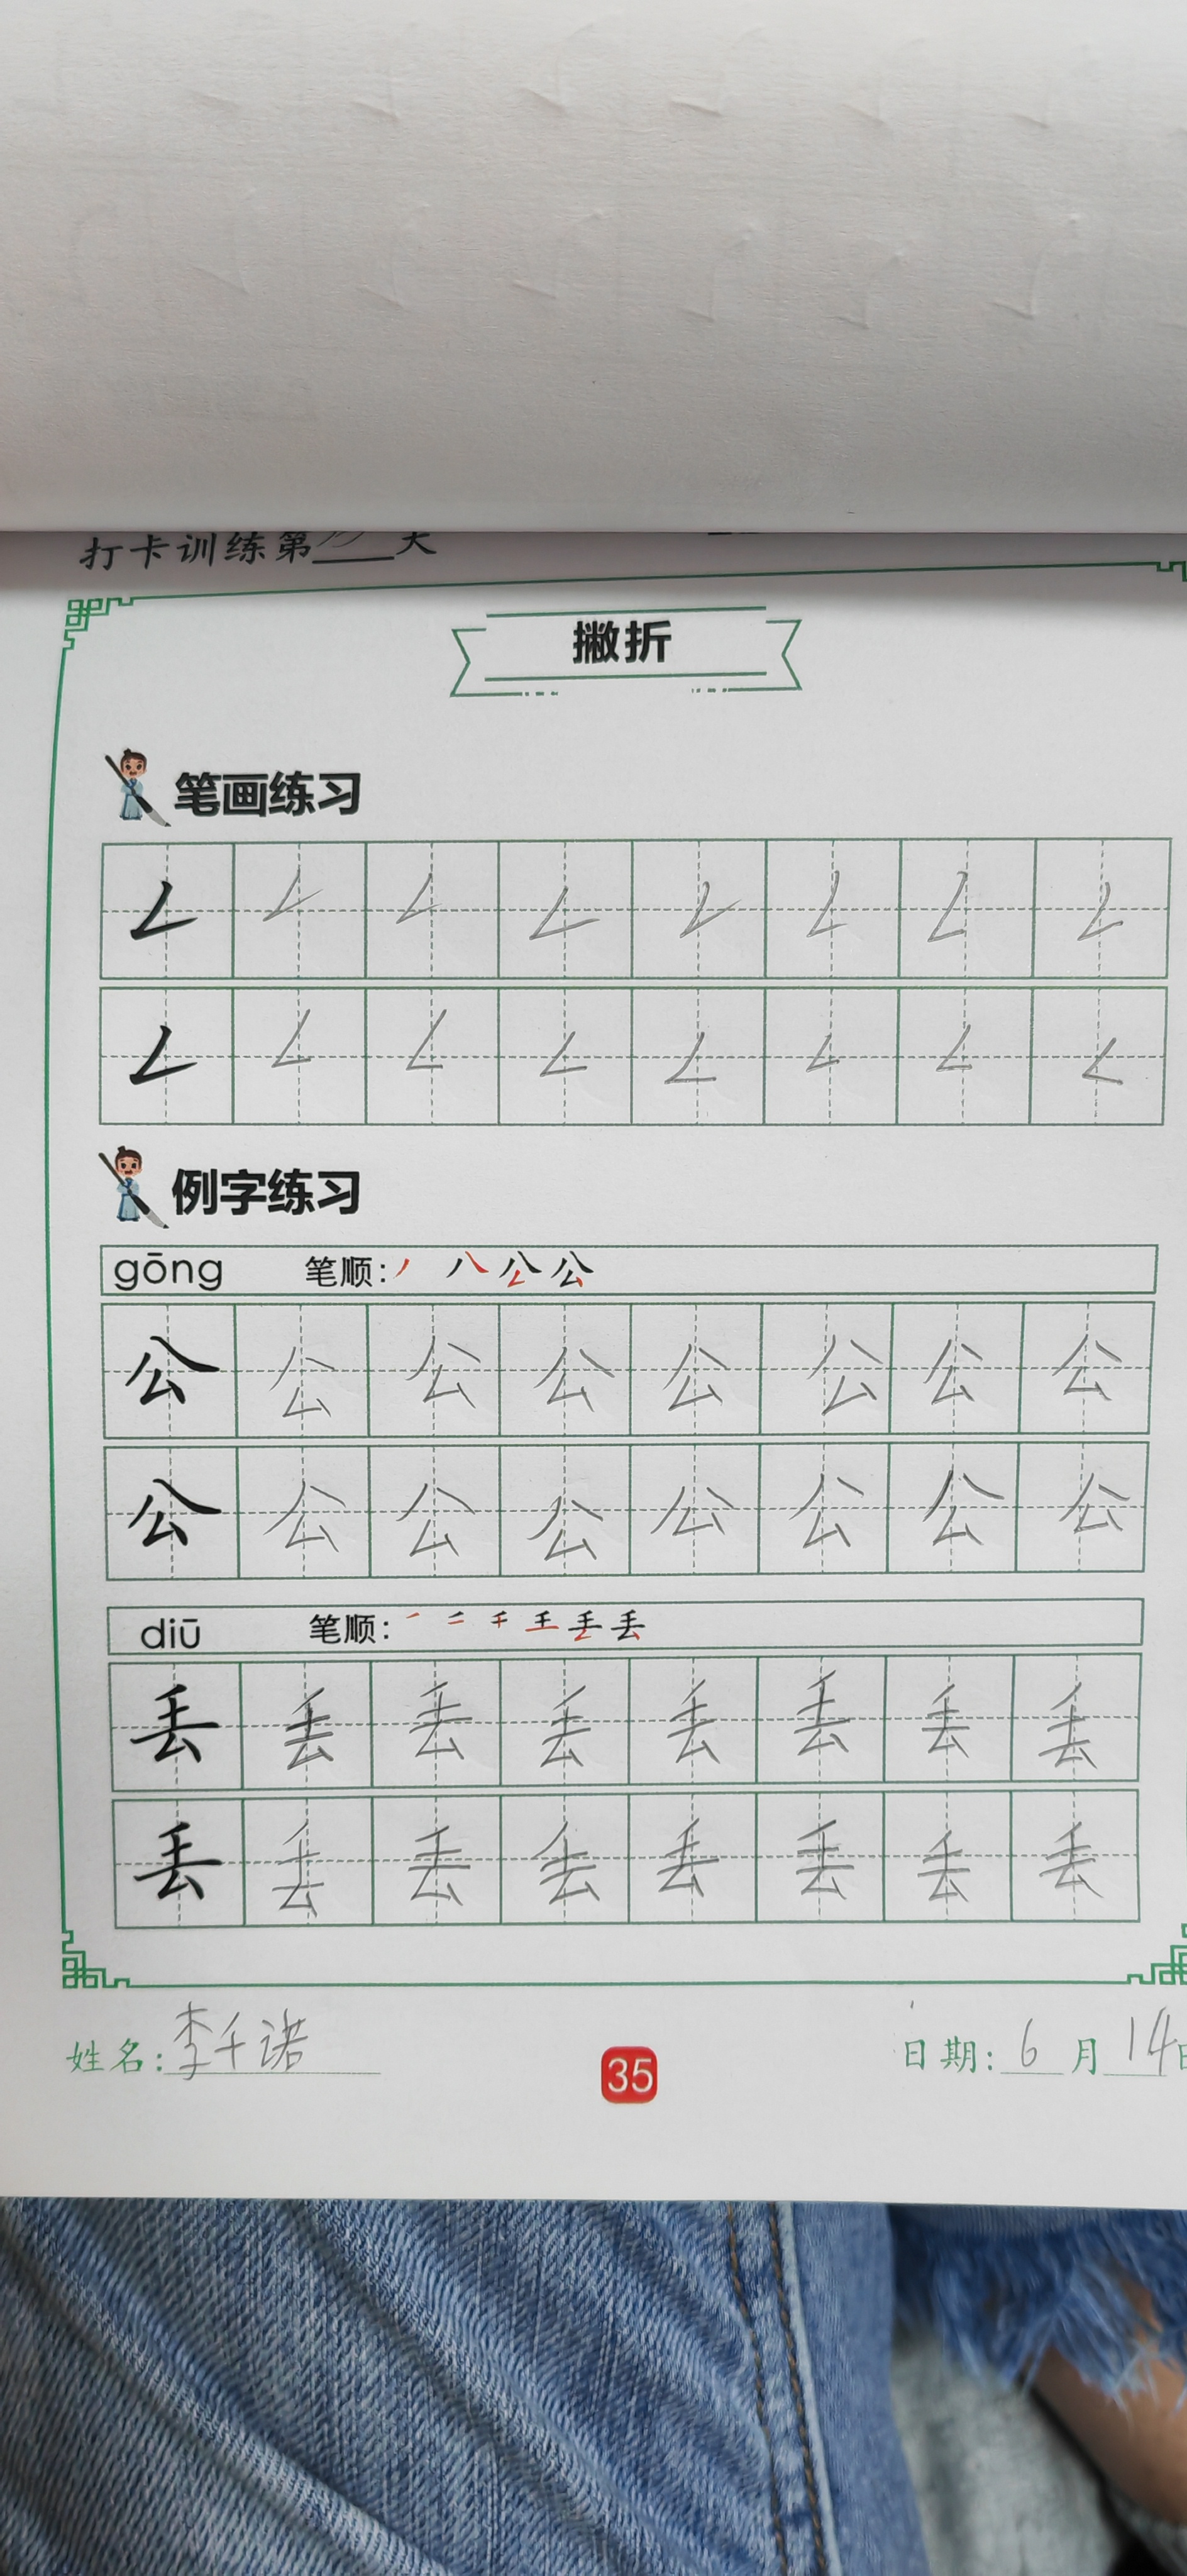 打卡训练第 天
撇折
笔画练习
例字练习
gōng 笔顺:丿 八 公 公
公 公 公 公 公 公 公 公
公 公 公 公 公 公 公 公
diū 笔顺:
丢 丢 丢 丢 丢 丢 丢 丢
丢 丢 丢 丢 丢 丢 丢 丢
姓名:李千诺
35
日期:6月14日